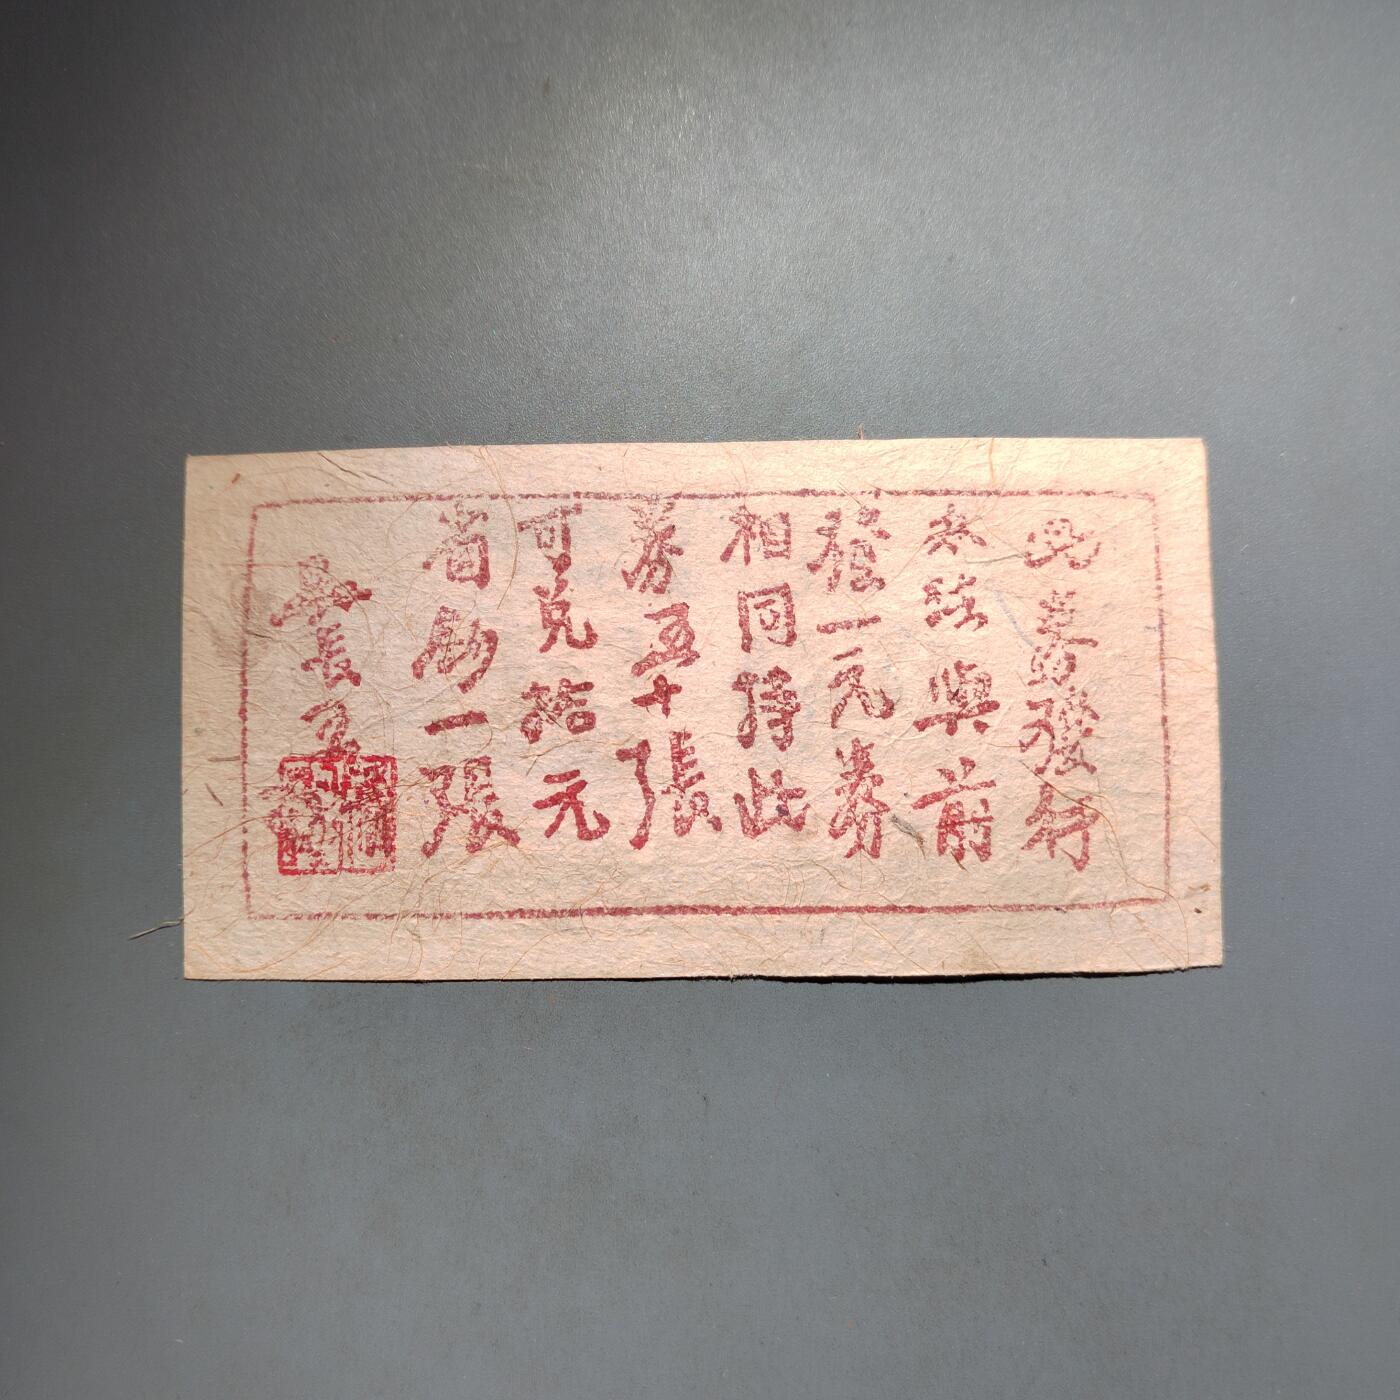 此券發行
办法與前
發一元券
相同持此
券五十張
可兑拾元
省鈔一張
縣長